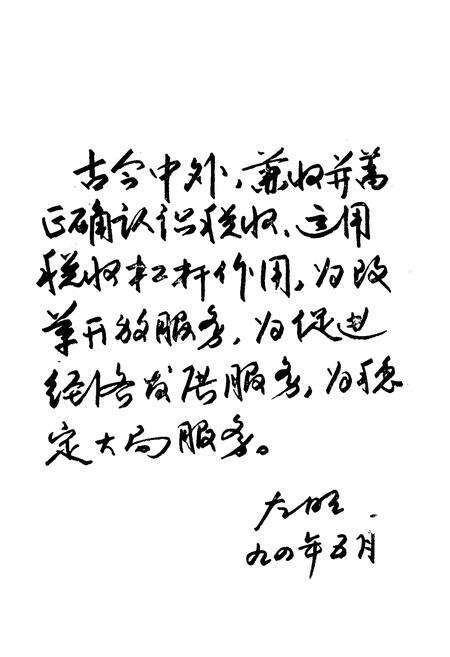 古今中外，兼收并蓄
正确认识税收、运用
税收杠杆作用，为改
革开放服务，为促进
经济发展服务，为稳
定大局服务。
九四年五月